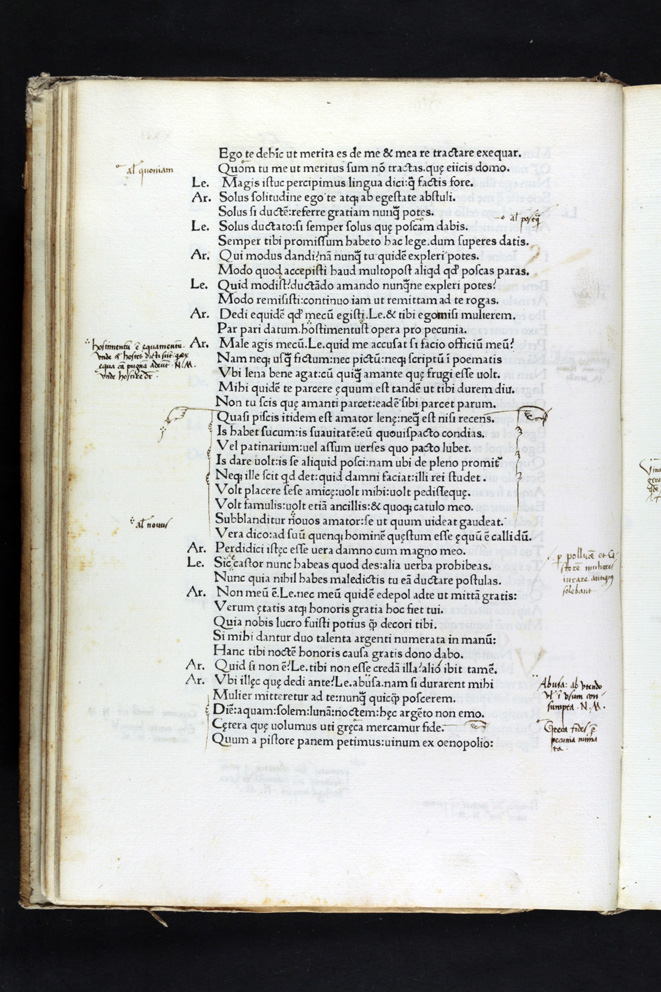 Ego te dehīc ut merita es de me & mea re tractare exequar.
al' quoniam
Quom tu me ut meritus sum nō tractas. quę eiicis domo.
Le. Magis istuc percipimus lingua dici: q̄ factis fore.
Ar. Solus solitudine ego te atq; ab egestate abstuli.
Solus si ductē: referre gratiam nunq̄ potes.
Le. Solus ductato: si semper solus quę poscam dabis.
Semper tibi promissum habeto hac lege. dum superes datis.
Ar. Qui modus dandi? nā nunq̄ tu quidē expleri potes.
Modo quod accepisti haud multopost aliqd qd' poscas paras.
Le. Quid modist? ductādo amando nunqne expleri potes?
Modo remisisti: continuo iam ut remittam ad te rogas.
Ar. Dedi equidē qd' mecū egisti. Le. & tibi ego misi mulierem.
Par pari datum. hostimentust opera pro pecunia.
Ar. Male agis mecū. Le. quid me accusas si facio officiū meū?
Nam neq; usq̄ fictum: nec pictū: neq; scriptū i poematis
Vbi lena bene agat: cū quiq̄ amante quę frugi esse uolt.
Mihi quidē te parcere ęquum est tandē ut tibi durem diu.
Non tu scis quę amanti parcet: eadē sibi parcet parum.
Quasi piscis itidem est amator lenę: neq̄ est nisi recens.
Is habet sucum: is suauitatē: eū quouis pacto condias.
Vel patinarium: uel assum uerses quo pacto lubet.
Is dare uolt: is se aliquid posci: nam ubi de pleno promit
Neq; ille scit qd det: quid damni faciat: illi rei studet.
Volt placere sese amicę: uolt mihi: uolt pedissequę.
Volt famulis: uolt etiā ancillis: & quoq; catulo meo.
al' nouus
Subblanditur nouos amator: se ut quum uideat gaudeat.
Vera dico: ad suū quenq; hominē quęstum esse ęquū ē callidū.
Ar. Perdidici istęc esse uera damno cum magno meo.
Le. Sic ęcastor nunc habeas quod des: alia uerba prohibeas.
Nunc quia nihil habes maledictis tu eā ductare postulas.
Ar. Non meū ē. Le. nec meū quidē edepol adte ut mittā gratis:
Verum ętatis atq; honoris gratia hoc fiet tui.
Quia nobis lucro fuisti potius q̄ decori tibi.
Si mihi dantur duo talenta argenti numerata in manū:
Hanc tibi noctē honoris causa gratis dono dabo.
Ar. Quid si non ē? Le. tibi non esse credā illa? alio ibit tamē.
Ar. Vbi illęc quę dedi ante? Le. abusa. nam si durarent mihi
Mulier mitteretur ad te: nunq̄ quicq̄ poscerem.
Diē: aquam: solem: lunā: noctem: hęc argēto non emo.
Cętera quę uolumus uti gręca mercamur fide.
Quum a pistore panem petimus: uinum ex oenopolio: